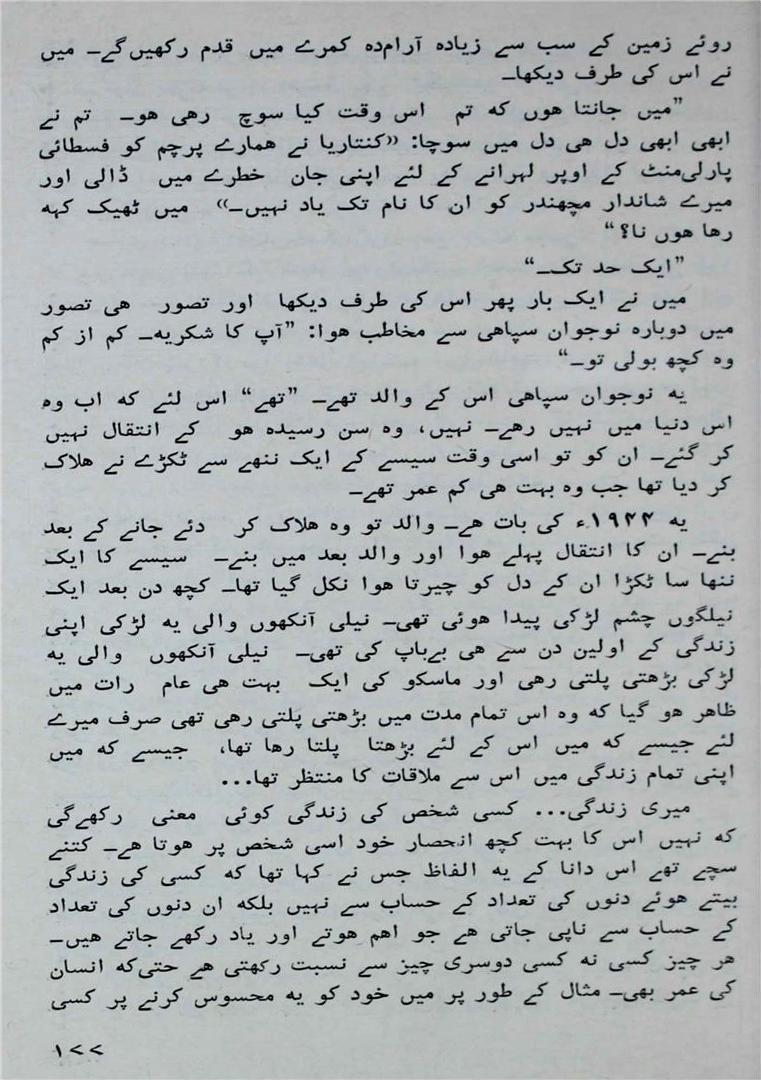 روئے زمین کے سب سے زیادہ آرام‌دہ کمرے میں قدم رکھیں‌گے۔ میں
نے اس کی طرف دیکھا۔
”میں جانتا ہوں کہ تم اس وقت کیا سوچ رہی ہو۔ تم نے
ابھی ابھی دل ہی دل میں سوچا: «کنتاریا نے ہمارے پرچم کو فسطائی
پارلی‌منٹ کے اوپر لہرانے کے لئے اپنی جان خطرے میں ڈالی اور
میرے شاندار مچھندر کو ان کا نام تک یاد نہیں۔» میں ٹھیک کہہ
رہا ہوں نا؟“
”ایک حد تک۔“
میں نے ایک بار پھر اس کی طرف دیکھا اور تصور ہی تصور
میں دوبارہ نوجوان سپاہی سے مخاطب ہوا: ”آپ کا شکریہ۔ کم از کم
وہ کچھ بولی تو۔“
یہ نوجوان سپاہی اس کے والد تھے۔ ”تھے“ اس لئے کہ اب وہ
اس دنیا میں نہیں رہے۔ نہیں، وہ سن رسیدہ ہو کے انتقال نہیں
کر گئے۔ ان کو تو اسی وقت سیسے کے ایک ننھے سے ٹکڑے نے ہلاک
کر دیا تھا جب وہ بہت ہی کم عمر تھے۔
یہ ۱۹۴۴ء کی بات ہے۔ والد تو وہ ہلاک کر دئے جانے کے بعد
بنے۔ ان کا انتقال پہلے ہوا اور والد بعد میں بنے۔ سیسے کا ایک
ننھا سا ٹکڑا ان کے دل کو چیرتا ہوا نکل گیا تھا۔ کچھ دن بعد ایک
نیلگوں چشم لڑکی پیدا ہوئی تھی۔ نیلی آنکھوں والی یہ لڑکی اپنی
زندگی کے اولین دن سے ہی بے‌باپ کی تھی۔ نیلی آنکھوں والی یہ
لڑکی بڑھتی پلتی رہی اور ماسکو کی ایک بہت ہی عام رات میں
ظاہر ہو گیا کہ وہ اس تمام مدت میں بڑھتی پلتی رہی تھی صرف میرے
لئے جیسے کہ میں اس کے لئے بڑھتا پلتا رہا تھا، جیسے کہ میں
اپنی تمام زندگی میں اس سے ملاقات کا منتظر تھا...
میری زندگی... کسی شخص کی زندگی کوئی معنی رکھے‌گی
کہ نہیں اس کا بہت کچھ انحصار خود اسی شخص پر ہوتا ہے۔ کتنے
سچے تھے اس دانا کے یہ الفاظ جس نے کہا تھا کہ کسی کی زندگی
بیتے ہوئے دنوں کی تعداد کے حساب سے نہیں بلکہ ان دنوں کی تعداد
کے حساب سے ناپی جاتی ہے جو اہم ہوتے اور یاد رکھے جاتے ہیں۔
ہر چیز کسی نہ کسی دوسری چیز سے نسبت رکھتی ہے حتی‌کہ انسان
کی عمر بھی۔ مثال کے طور پر میں خود کو یہ محسوس کرنے پر کسی
۱۷۷